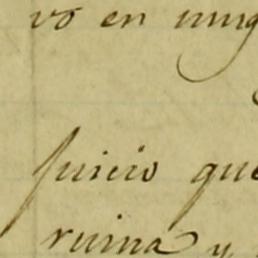 vo en ning
Juicio que
ruina y